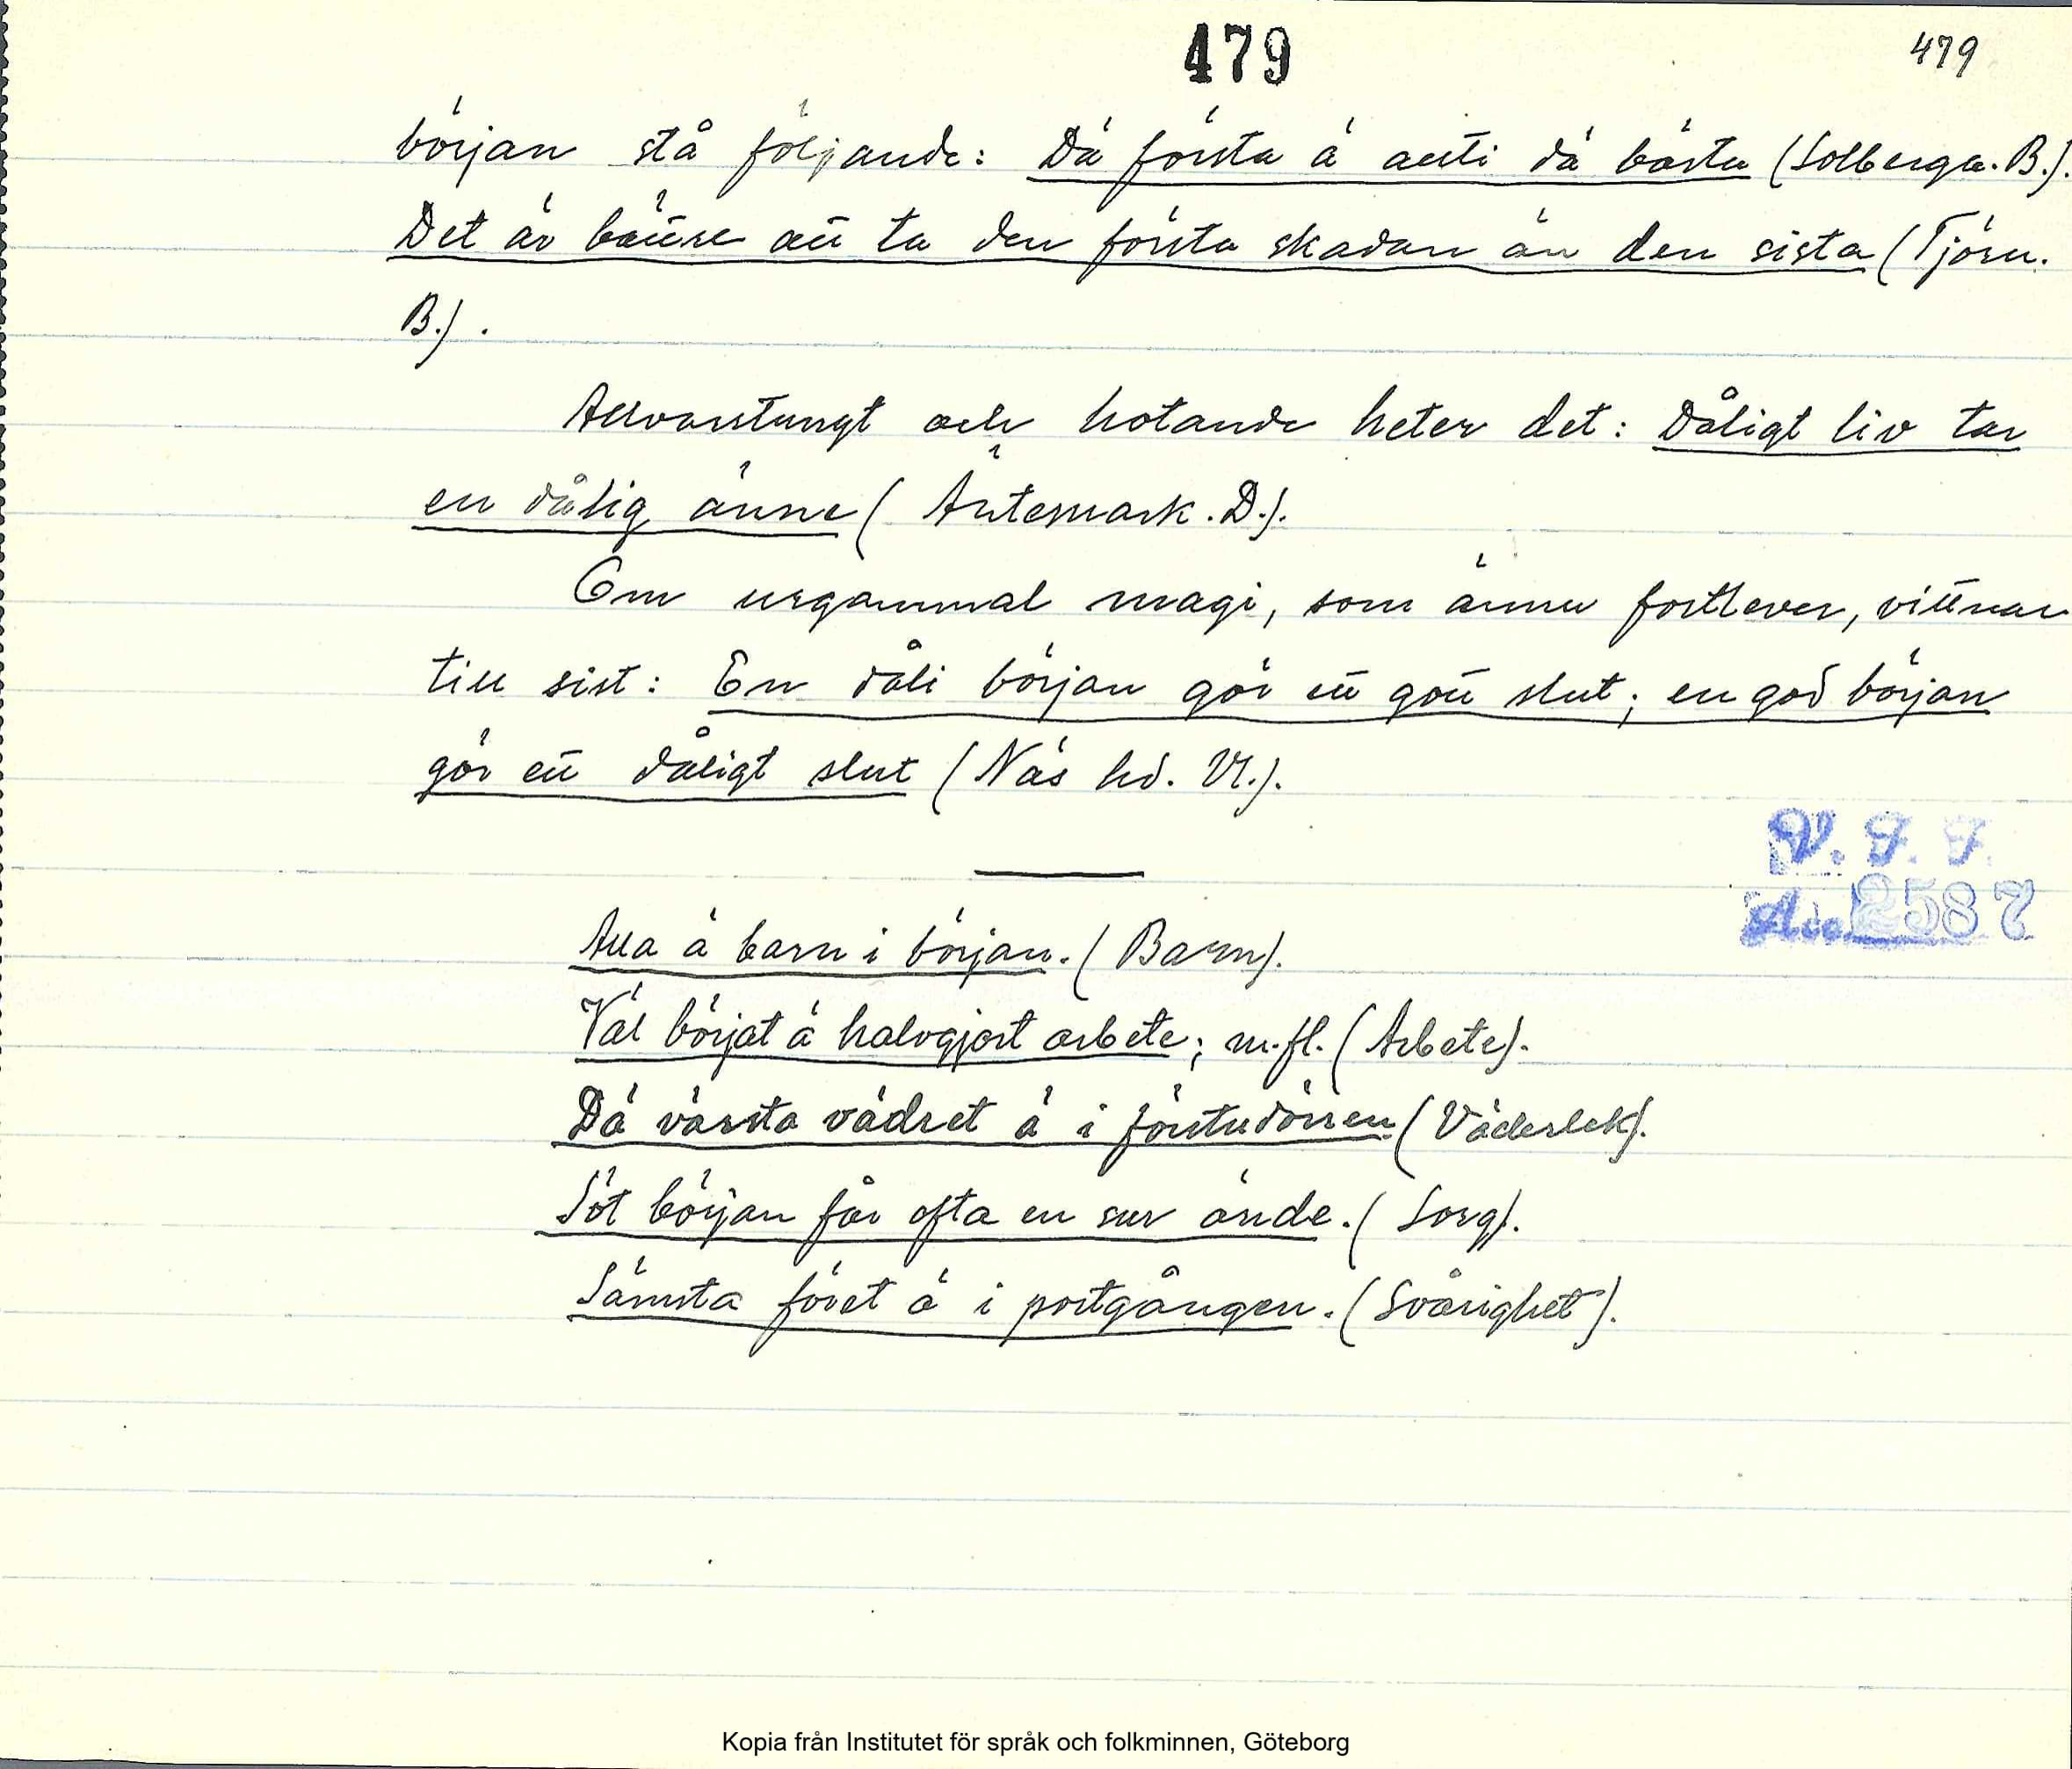 479
479
början stå följande: Dä första ä allti dä bästa (Solberga. B.).
Det är bättre att ta den första skadan än den sista (Tjörn.
B.).
Allvarstungt och hotande heter det: Dåligt liv tar
en dålig änne (Ärtemark. D.).
Om urgammal magi, som ännu fortlever, vittnar
till sist: En dåli början gör ett gott slut; en god början
gör ett dåligt slut (Näs hd. Vl.).
V. F. F.
Acc. 2587
Alla ä barn i början. (Barn).
Väl börjat ä halvgjort arbete; m.fl. (Arbete).
Dä värsta vädret ä i förstudörren (Väderlek).
Söt början får ofta en sur ände. (Sorg).
Sämsta föret ä i portgången. (Svårighet).
Kopia från Institutet för språk och folkminnen, Göteborg